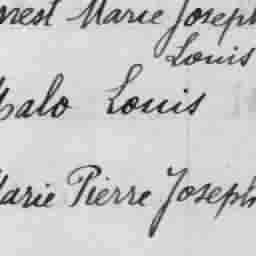 Marie Joseph
Louis
Malo Louis
Marie Pierre Joseph